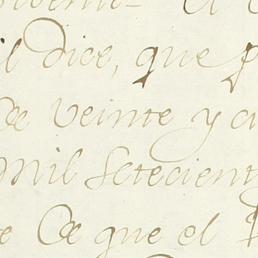 il dice, que p
de Veinte y ci
mil Setecient
e de que el P